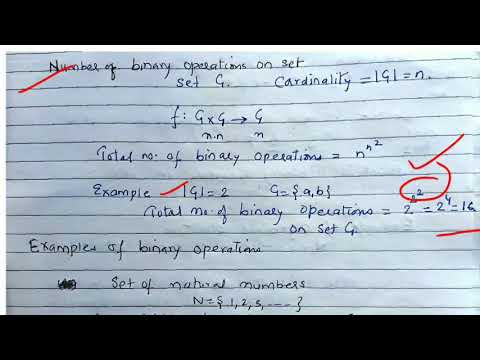 Number of binary operations on set
Set G. Cardinality = |G| = n.
f: G×G → G
n.n n
Total no. of binary operations = n^n^2
Example |G| = 2 G = {a,b}
Total no. of binary operations = 2^2^2 = 2^4 = 16
on set G.
Examples of binary operations
Set of natural numbers
N = {1, 2, 3, ----}